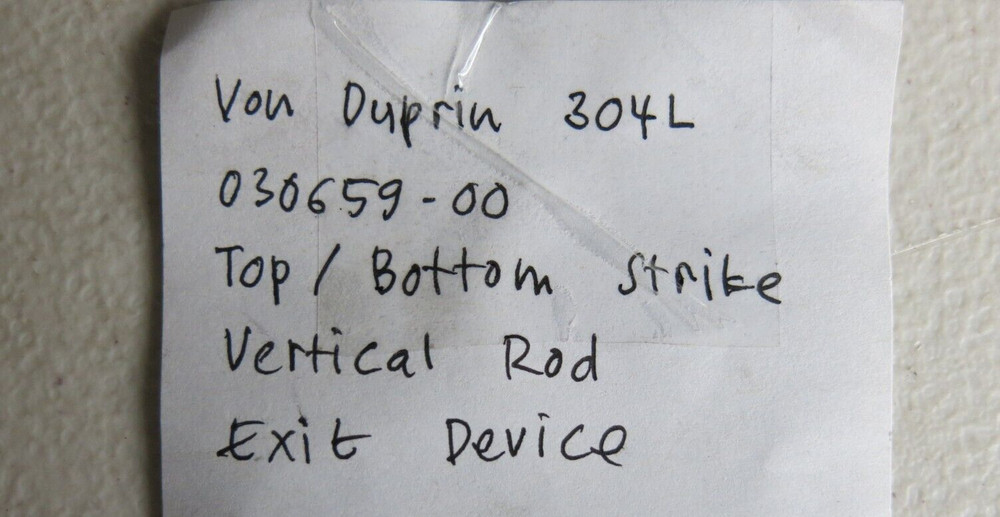 Von Duprin 304L
030659-00
Top/Bottom Strike
Vertical Rod
Exit Device